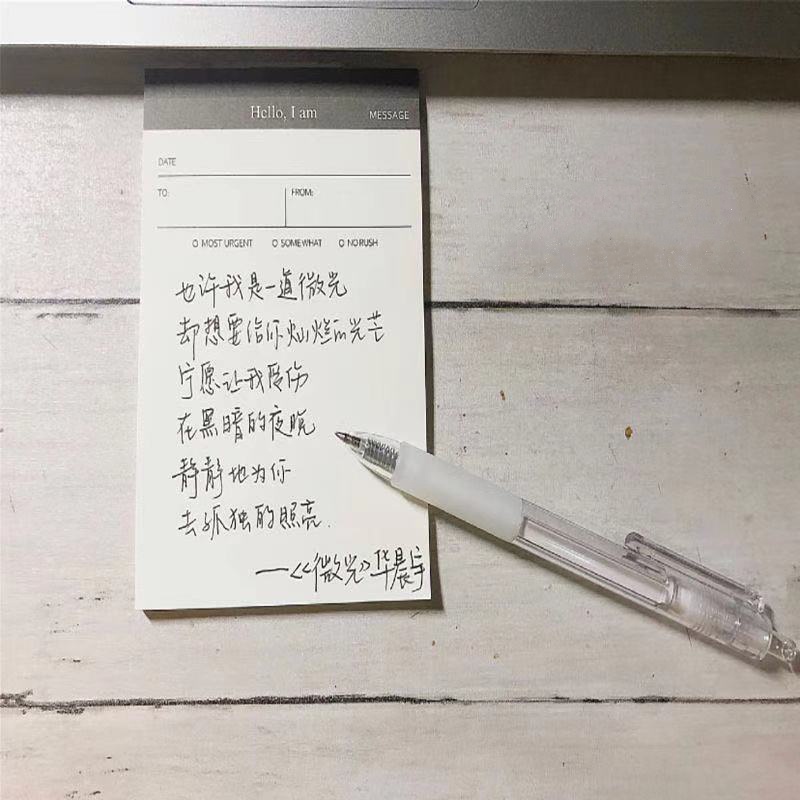 Hello, I am
MESSAGE
DATE
TO: FROM:
O MOST URGENT O SOMEWHAT O NO RUSH
也许我是一道微光
却想要给你灿烂的光芒
宁愿让我受伤
在黑暗的夜晚
静静地为你
去孤独的照亮.
—<<微光>华晨宇